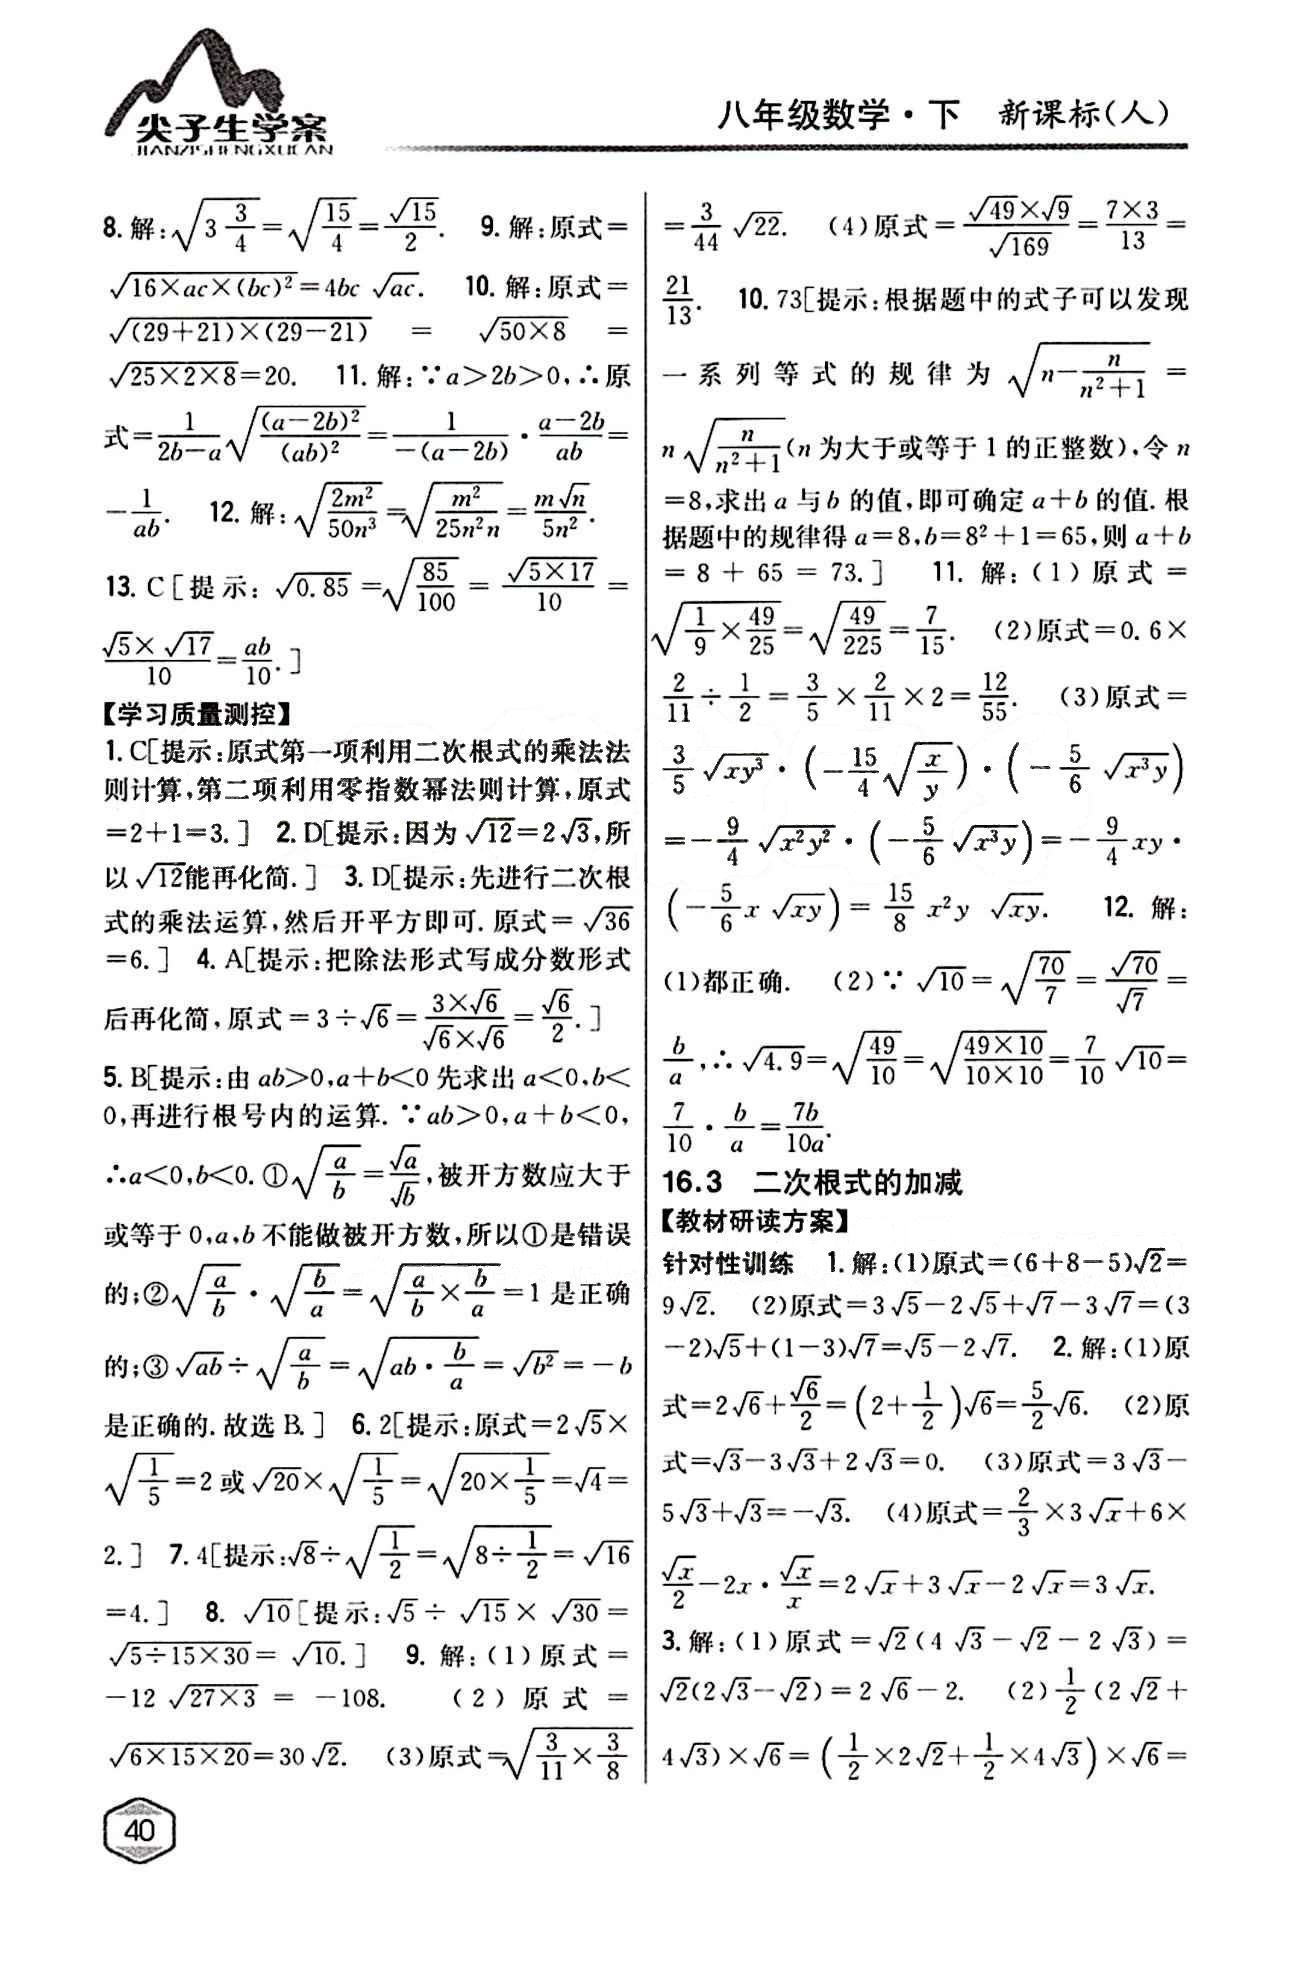 尖子生学案
JIANZISHENGXUEAN
八年级数学·下 新课标(人)
8.解:√(3 3/4)=√(15/4)=√15/2. 9.解:原式=
√(16×ac×(bc)²)=4bc√ac. 10.解:原式=
√((29+21)×(29-21)) = √(50×8) =
√(25×2×8)=20. 11.解:∵a>2b>0,∴原
式=1/(2b-a)√((a-2b)²/(ab)²)=1/(-(a-2b))·(a-2b)/ab=
-1/ab. 12.解:√(2m²/50n³)=√(m²/25n²n)=m√n/5n².
13.C[提示:√0.85=√(85/100)=√(5×17)/10=
√5×√17/10=ab/10.]
【学习质量测控】
1.C[提示:原式第一项利用二次根式的乘法法
则计算,第二项利用零指数幂法则计算,原式
=2+1=3.] 2.D[提示:因为√12=2√3,所
以√12能再化简.] 3.D[提示:先进行二次根
式的乘法运算,然后开平方即可.原式=√36
=6.] 4.A[提示:把除法形式写成分数形式
后再化简,原式=3÷√6=(3×√6)/(√6×√6)=√6/2.]
5.B[提示:由ab>0,a+b<0先求出a<0,b<
0,再进行根号内的运算.∵ab>0,a+b<0,
∴a<0,b<0.①√(a/b)=√a/√b,被开方数应大于
或等于0,a,b不能做被开方数,所以①是错误
的;②√(a/b)·√(b/a)=√(a/b×b/a)=1是正确
的;③√ab÷√(a/b)=√(ab·b/a)=√b²=-b
是正确的.故选B.] 6.2[提示:原式=2√5×
√(1/5)=2或√20×√(1/5)=√(20×1/5)=√4=
2.] 7.4[提示:√8÷√(1/2)=√(8÷1/2)=√16
=4.] 8. √10[提示:√5÷√15×√30=
√(5÷15×30)=√10.] 9.解:(1)原式=
-12√(27×3)=-108. (2)原式=
√(6×15×20)=30√2. (3)原式=√(3/11×3/8)
=3/44√22. (4)原式=(√49×√9)/√169=(7×3)/13=
21/13. 10.73[提示:根据题中的式子可以发现
一系列等式的规律为√(n-n/(n²+1))=
n√(n/(n²+1))(n为大于或等于1的正整数),令n
=8,求出a与b的值,即可确定a+b的值.根
据题中的规律得a=8,b=8²+1=65,则a+b
=8+65=73.] 11.解:(1)原式=
√(1/9×49/25)=√(49/225)=7/15. (2)原式=0.6×
2/11÷1/2=3/5×2/11×2=12/55. (3)原式=
3/5√(xy³)·(-15/4√(x/y))·(-5/6√(x³y))
=-9/4√(x²y²)·(-5/6√(x³y))=-9/4xy·
(-5/6x√xy)=15/8x²y√xy. 12.解:
(1)都正确. (2)∵√10=√(70/7)=√70/√7=
b/a,∴√4.9=√(49/10)=√((49×10)/(10×10))=7/10√10=
7/10·b/a=7b/10a.
16.3 二次根式的加减
【教材研读方案】
针对性训练 1.解:(1)原式=(6+8-5)√2=
9√2. (2)原式=3√5-2√5+√7-3√7=(3
-2)√5+(1-3)√7=√5-2√7. 2.解:(1)原
式=2√6+√6/2=(2+1/2)√6=5/2√6. (2)原
式=√3-3√3+2√3=0. (3)原式=3√3-
5√3+√3=-√3. (4)原式=2/3×3√x+6×
√x/2-2x·√x/x=2√x+3√x-2√x=3√x.
3.解:(1)原式=√2(4√3-√2-2√3)=
√2(2√3-√2)=2√6-2. (2)1/2(2√2+
4√3)×√6=(1/2×2√2+1/2×4√3)×√6=
40